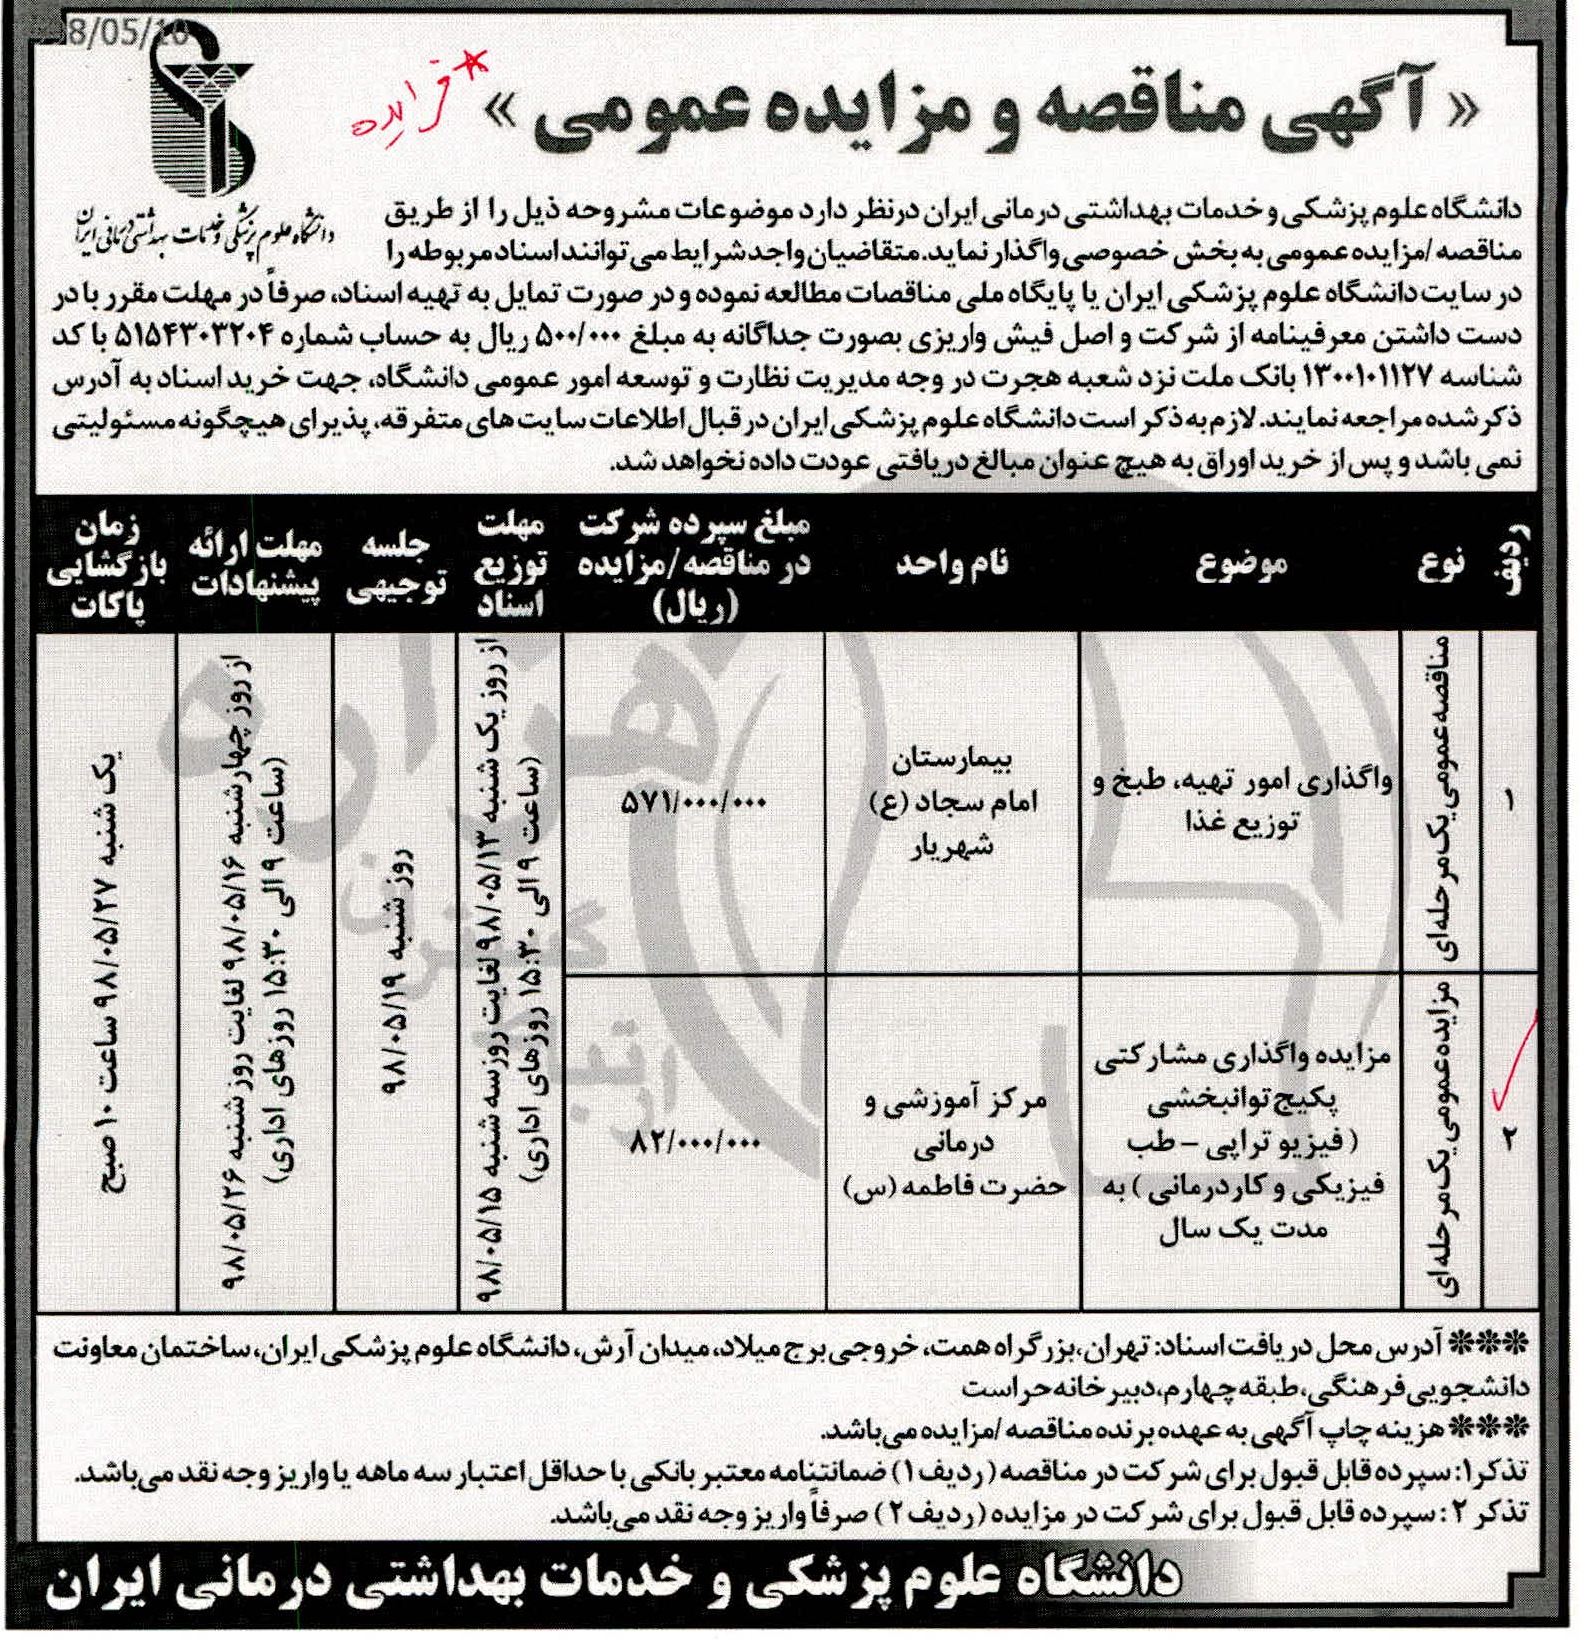 98/05/10
« آگهی مناقصه و مزایده عمومی »
* مزایده
دانشگاه علوم پزشکی و خدمات بهداشتی درمانی ایران
دانشگاه علوم پزشکی و خدمات بهداشتی درمانی ایران درنظر دارد موضوعات مشروحه ذیل را از طریق
مناقصه /مزایده عمومی به بخش خصوصی واگذار نماید. متقاضیان واجد شرایط می توانند اسناد مربوطه را
در سایت دانشگاه علوم پزشکی ایران یا پایگاه ملی مناقصات مطالعه نموده و در صورت تمایل به تهیه اسناد، صرفاً در مهلت مقرر با در
دست داشتن معرفینامه از شرکت و اصل فیش واریزی بصورت جداگانه به مبلغ ۵۰۰/۰۰۰ ریال به حساب شماره ۵۱۵۴۳۰۳۲۰۴ با کد
شناسه ۱۳۰۰۱۰۱۱۲۷ بانک ملت نزد شعبه هجرت در وجه مدیریت نظارت و توسعه امور عمومی دانشگاه، جهت خرید اسناد به آدرس
ذکر شده مراجعه نمایند. لازم به ذکر است دانشگاه علوم پزشکی ایران در قبال اطلاعات سایت های متفرقه، پذیرای هیچگونه مسئولیتی
نمی باشد و پس از خرید اوراق به هیچ عنوان مبالغ دریافتی عودت داده نخواهد شد.
ردیف
نوع
موضوع
نام واحد
مبلغ سپرده شرکت
در مناقصه /مزایده
(ریال)
مهلت
توزیع
اسناد
جلسه
توجیهی
مهلت ارائه
پیشنهادات
زمان
بازگشایی
پاکات
۱
مناقصه عمومی یک مرحله ای
واگذاری امور تهیه، طبخ و
توزیع غذا
بیمارستان
امام سجاد (ع)
شهریار
۵۷۱/۰۰۰/۰۰۰
از روز یک شنبه ۹۸/۰۵/۱۳ لغایت روز سه شنبه ۹۸/۰۵/۱۵
(ساعت ۹ الی ۱۵:۳۰ روزهای اداری)
روز شنبه ۹۸/۰۵/۱۹
از روز چهارشنبه ۹۸/۰۵/۱۶ لغایت روز شنبه ۹۸/۰۵/۲۶
(ساعت ۹ الی ۱۵:۳۰ روزهای اداری)
یک شنبه ۹۸/۰۵/۲۷ ساعت ۱۰ صبح
۲
مزایده عمومی یک مرحله ای
مزایده واگذاری مشارکتی
پکیج توانبخشی
(فیزیو تراپی - طب
فیزیکی و کاردرمانی) به
مدت یک سال
مرکز آموزشی و
درمانی
حضرت فاطمه (س)
۸۲/۰۰۰/۰۰۰
هزاره
گستران
ارتباط
*** آدرس محل دریافت اسناد: تهران، بزرگراه همت، خروجی برج میلاد، میدان آرش، دانشگاه علوم پزشکی ایران، ساختمان معاونت
دانشجویی فرهنگی، طبقه چهارم، دبیرخانه حراست
*** هزینه چاپ آگهی به عهده برنده مناقصه /مزایده می باشد.
تذکر۱: سپرده قابل قبول برای شرکت در مناقصه (ردیف ۱) ضمانتنامه معتبر بانکی با حداقل اعتبار سه ماهه یا واریز وجه نقد می باشد.
تذکر ۲ : سپرده قابل قبول برای شرکت در مزایده (ردیف ۲) صرفاً واریز وجه نقد می باشد.
دانشگاه علوم پزشکی و خدمات بهداشتی درمانی ایران